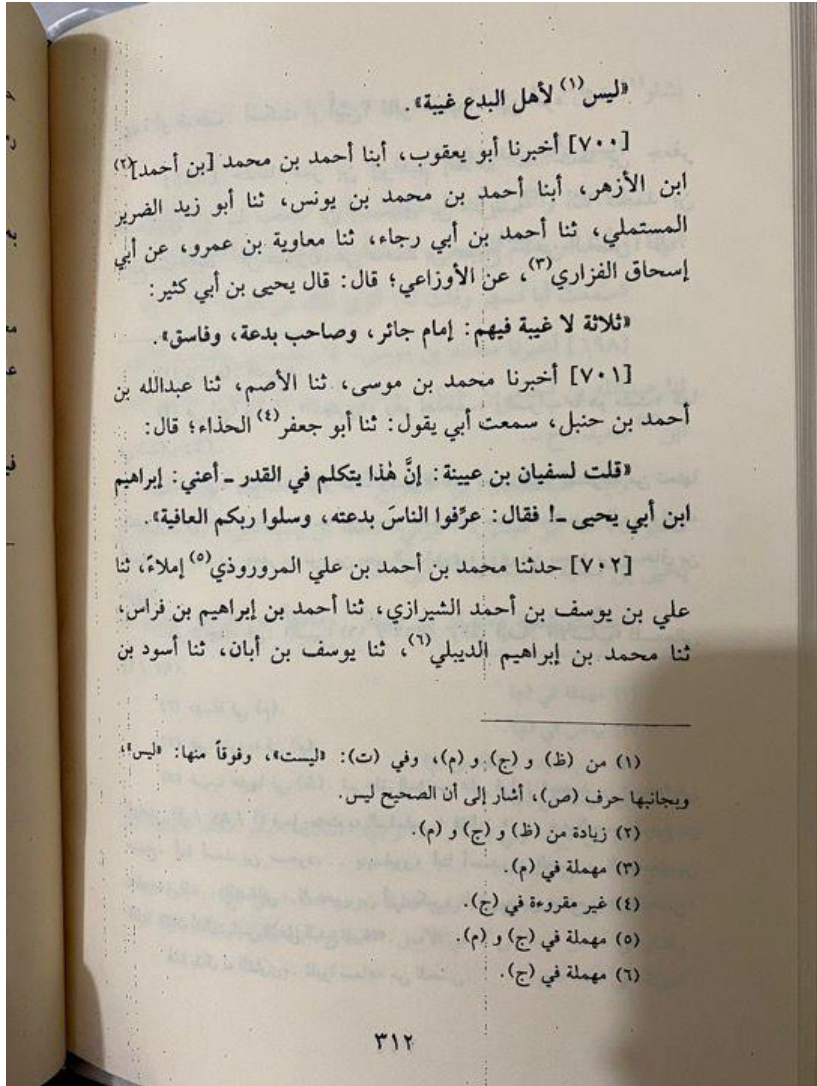 «ليس(١) لأهل البدع غيبة».
[٧٠٠] أخبرنا أبو يعقوب، أبنا أحمد بن محمد [بن أحمد](٢)
ابن الأزهر، أبنا أحمد بن محمد بن يونس، ثنا أبو زيد الضرير
المستملي، ثنا أحمد بن أبي رجاء، ثنا معاوية بن عمرو، عن أبي
إسحاق الفزاري(٣)، عن الأوزاعي؛ قال: قال يحيى بن أبي كثير:
«ثلاثة لا غيبة فيهم: إمام جائر، وصاحب بدعة، وفاسق».
[٧٠١] أخبرنا محمد بن موسى، ثنا الأصم، ثنا عبدالله بن
أحمد بن حنبل، سمعت أبي يقول: ثنا أبو جعفر(٤) الحذاء؛ قال:
«قلت لسفيان بن عيينة: إنَّ هٰذا يتكلم في القدر ـ أعني: إبراهيم
ابن أبي يحيى ـ! فقال: عرِّفوا الناسَ بدعته، وسلوا ربكم العافية».
[٧٠٢] حدثنا محمد بن أحمد بن علي المروروذي(٥) إملاءً، ثنا
علي بن يوسف بن أحمد الشيرازي، ثنا أحمد بن إبراهيم بن فراس،
ثنا محمد بن إبراهيم الديبلي(٦)، ثنا يوسف بن أبان، ثنا أسود بن
(١) من (ظ) و (ج) و (م)، وفي (ت): «ليست»، وفوقاً منها: «ليس»،
وبجانبها حرف (ص)، أشار إلى أن الصحيح ليس.
(٢) زيادة من (ظ) و (ج) و (م).
(٣) مهملة في (م).
(٤) غير مقروءة في (ج).
(٥) مهملة في (ج) و (م).
(٦) مهملة في (ج).
٣١٢